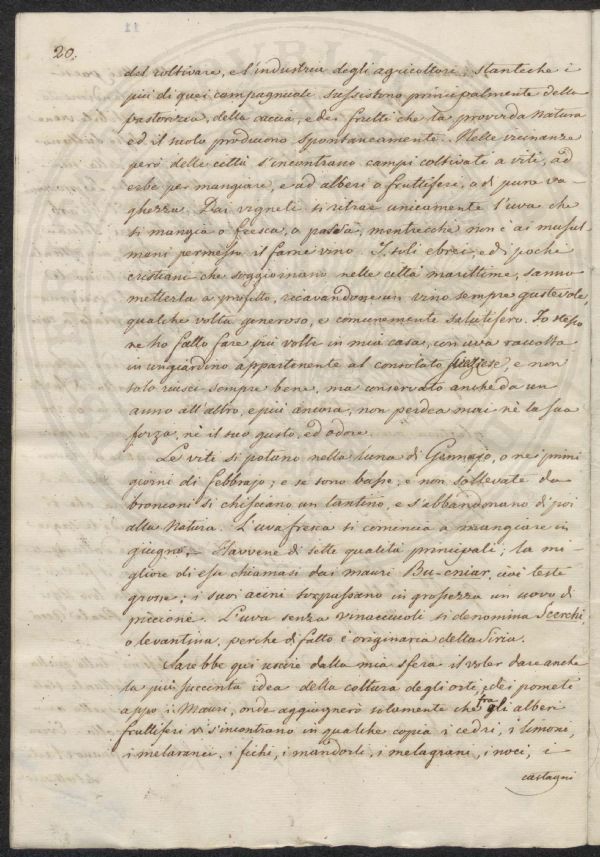 20.
del coltivare, e l'industria degli agricoltori; stanteche i
più di quei campagnuoli sussistono principalmente della
pastorizia, della caccia, e dei frutti che la provvida Natura
ed il suolo producono spontaneamente. Nelle vicinanze
però delle città s'incontrano campi coltivati a viti, ad
erbe per mangiare, e ad alberi o fruttiferi, o di pura va-
ghezza. Dai vigneti si ritrae unicamente l'uva che
si mangia o fresca, o passa, mentrecchè non è ai musul-
mani permesso il farne vino. I soli ebrei, ed i pochi
cristiani che soggiornano nelle città marittime, sanno
metterla a profitto, ricavandone un vino sempre gustevole,
qualche volta generoso, e comunemente salutifero. Io stesso
ne ho fatto fare più volte in mia casa, con uva raccolta
in un giardino appartenente al consolato, e non
solo riuscì sempre bene, ma conservato anche da un
anno all'altro, e più ancora, non perdea mai nè la sua
forza, nè il suo gusto, ed odore.
Le viti si potano nella luna di Gennajo, o nei primi
giorni di Febbrajo; e se sono basse, e non sollevate da
bronconi si chifciano un tantino, e s'abbandonano di poi
alla Natura. L'uva fresca si comincia a mangiare in
giugno. Havvene di sette qualità principali; la mi-
gliore di esse chiamasi dai mauri Bu-cniar, cioè teste
grosse; i suoi acini sorpassano in grossezza un uovo di
piccione. L'uva senza vinacciuoli si denomina Scerchi,
o levantina, perche di fatto è originaria della Siria.
Sarebbe qui uscire dalla mia sfera il voler dare anche
la più succinta idea della coltura degli orti, e dei pometi
appo i Mauri, onde aggiugnerò solamente che tra gli alberi
fruttiferi vi s'incontrano in qualche copia i cedri, i limoni,
i melaranci, i fichi, i mandorli, i melagrani, i noci, i
castagni